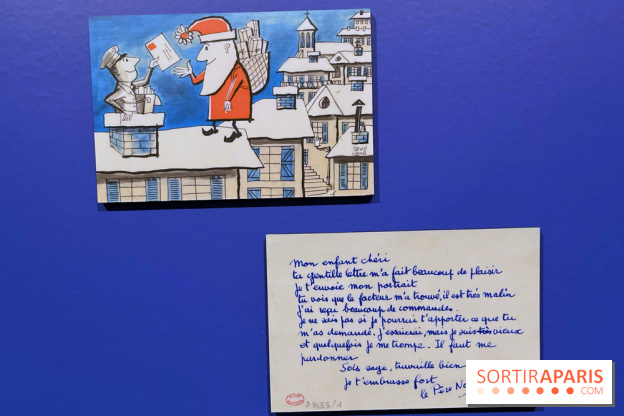 Mon enfant chéri
ta gentille lettre m'a fait beaucoup de plaisir
Je t'envoie mon portrait
tu vois que le facteur m'a trouvé, il est très malin
J'ai reçu beaucoup de commandes.
Je ne sais pas si je pourrai t'apporter ce que tu
m'as demandé. J'essaierai, mais je suis très vieux
et quelquefois je me trompe. Il faut me
pardonner
Sois sage, travaille bien
je t'embrasse fort
le Père
SORTIRAPARIS
.COM